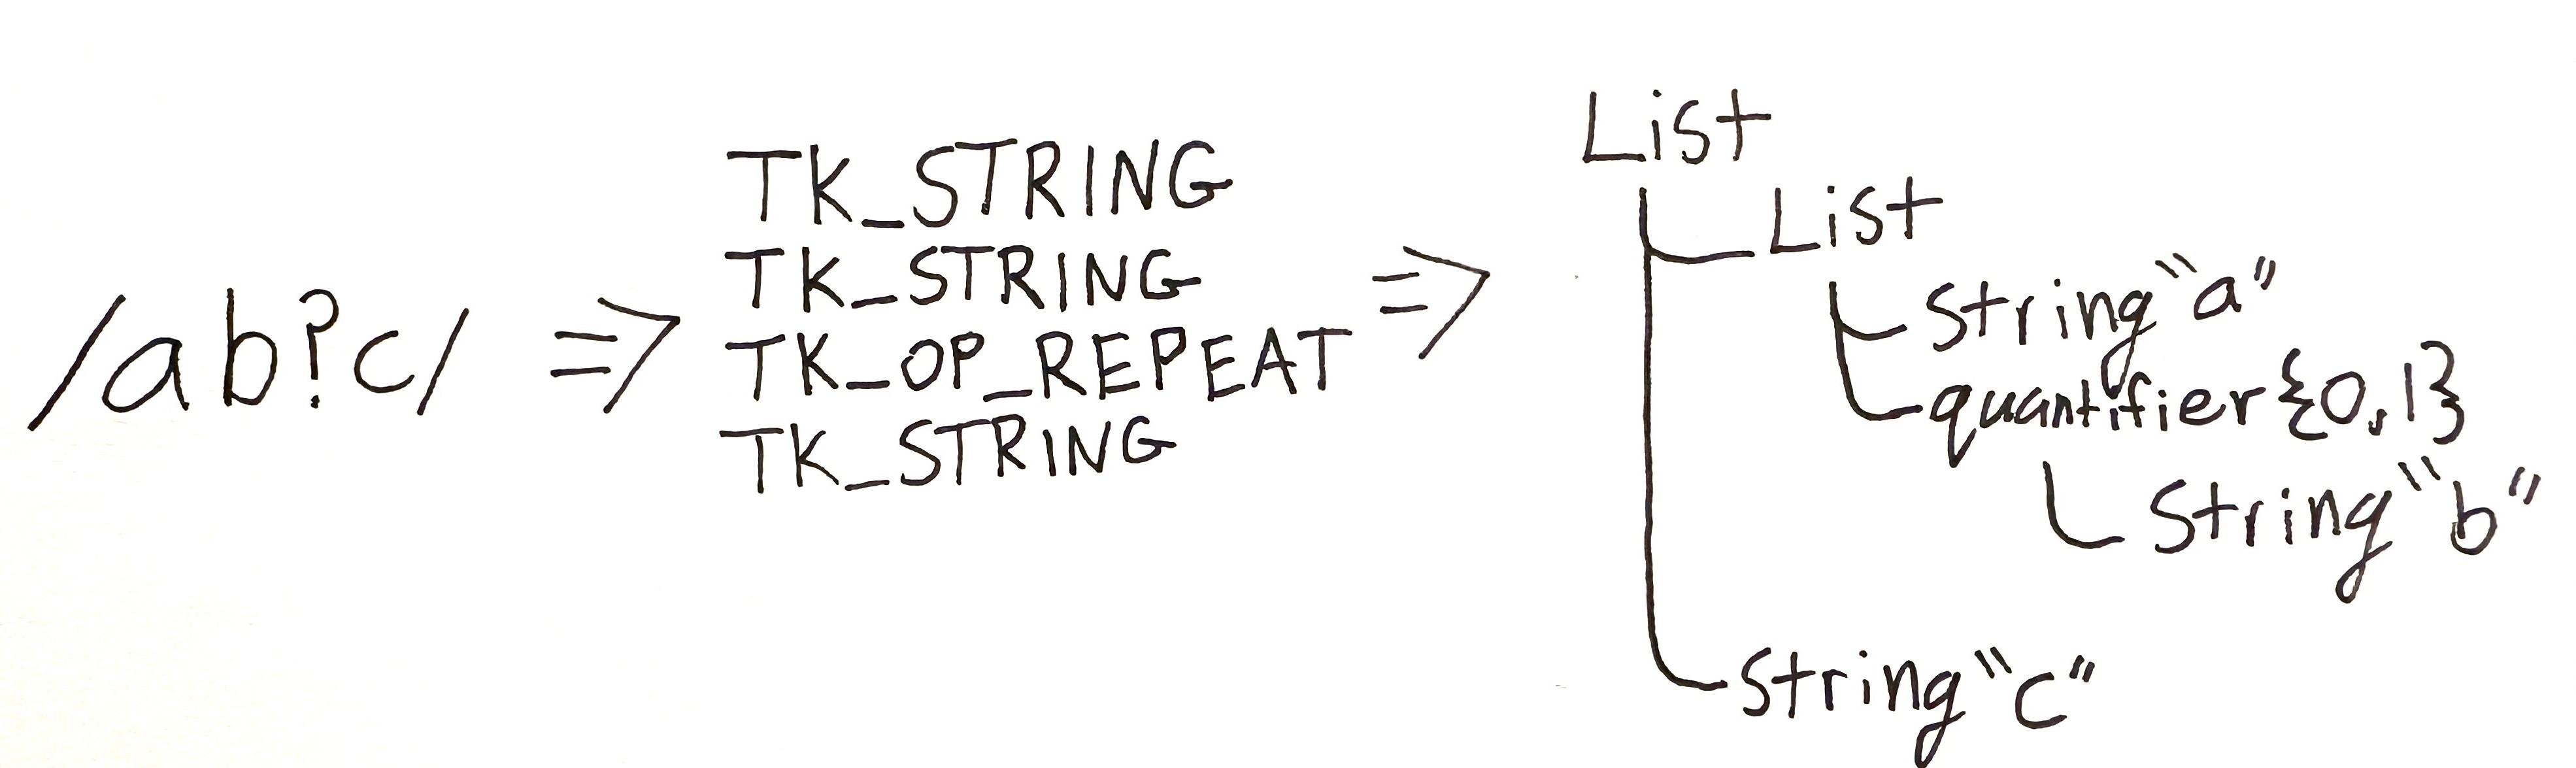 /ab?c/ => TK_STRING
TK_STRING
TK_OP_REPEAT
TK_STRING
=> List
List
String "a"
quantifier {0,1}
String "b"
String "c"